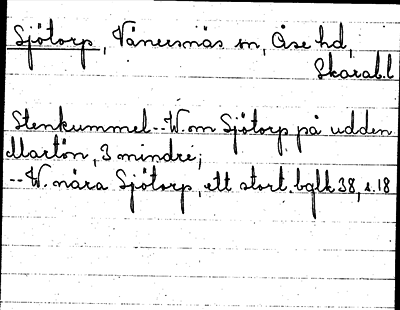 Sjötorp, Vänersnäs sn, Åse hd,
Skarab.l
Stenkummel--W om Sjötorp på udden
Martön, 3 mindre;
--W. nära Sjötorp, ett stort. bglk 38, s.18